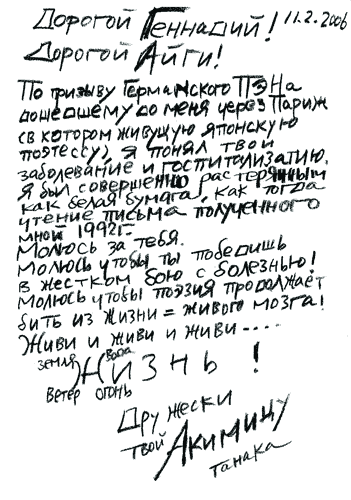 Дорогой Геннадий! 11.2.2006
Дорогой Айги!
По призыву Германского ПЭНа
дошедшему до меня через Париж
(в котором живущую японскую
поэтессу), я понял твои
заболевание и госпитализатию.
Я был совершенно растерянным
как белая бумага, как тогда
чтение письма полученного
мной 1992г.
Молюсь за тебя.
Молюсь чтобы ты победишь
в жестком бою с болезнью!
Молюсь чтобы поэзия продолжает
бить из жизни = живого мозга!
Живи и живи и живи.....
земля вода
Жизнь !
Ветер огонь
Дружески
твой Акимицу
танака